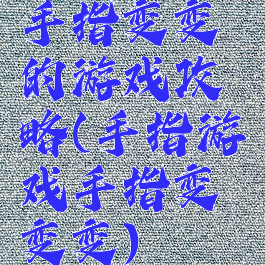 手指变变
的游戏攻
略(手指游
戏手指变
变变)